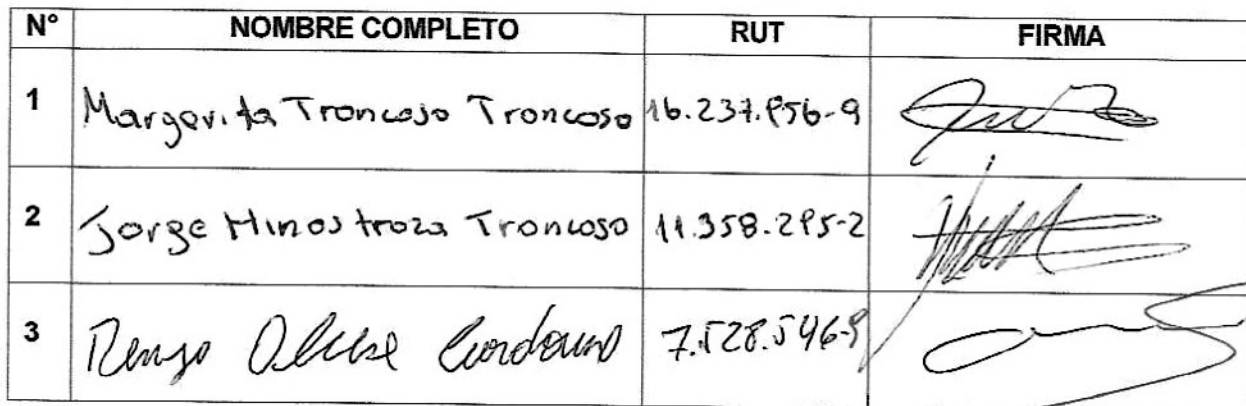 N° NOMBRE COMPLETO RUT FIRMA
1 Margarita Troncoso Troncoso 16.237.856-9
2 Jorge Hinostroza Troncoso 11.358.285-2
3 Renzo